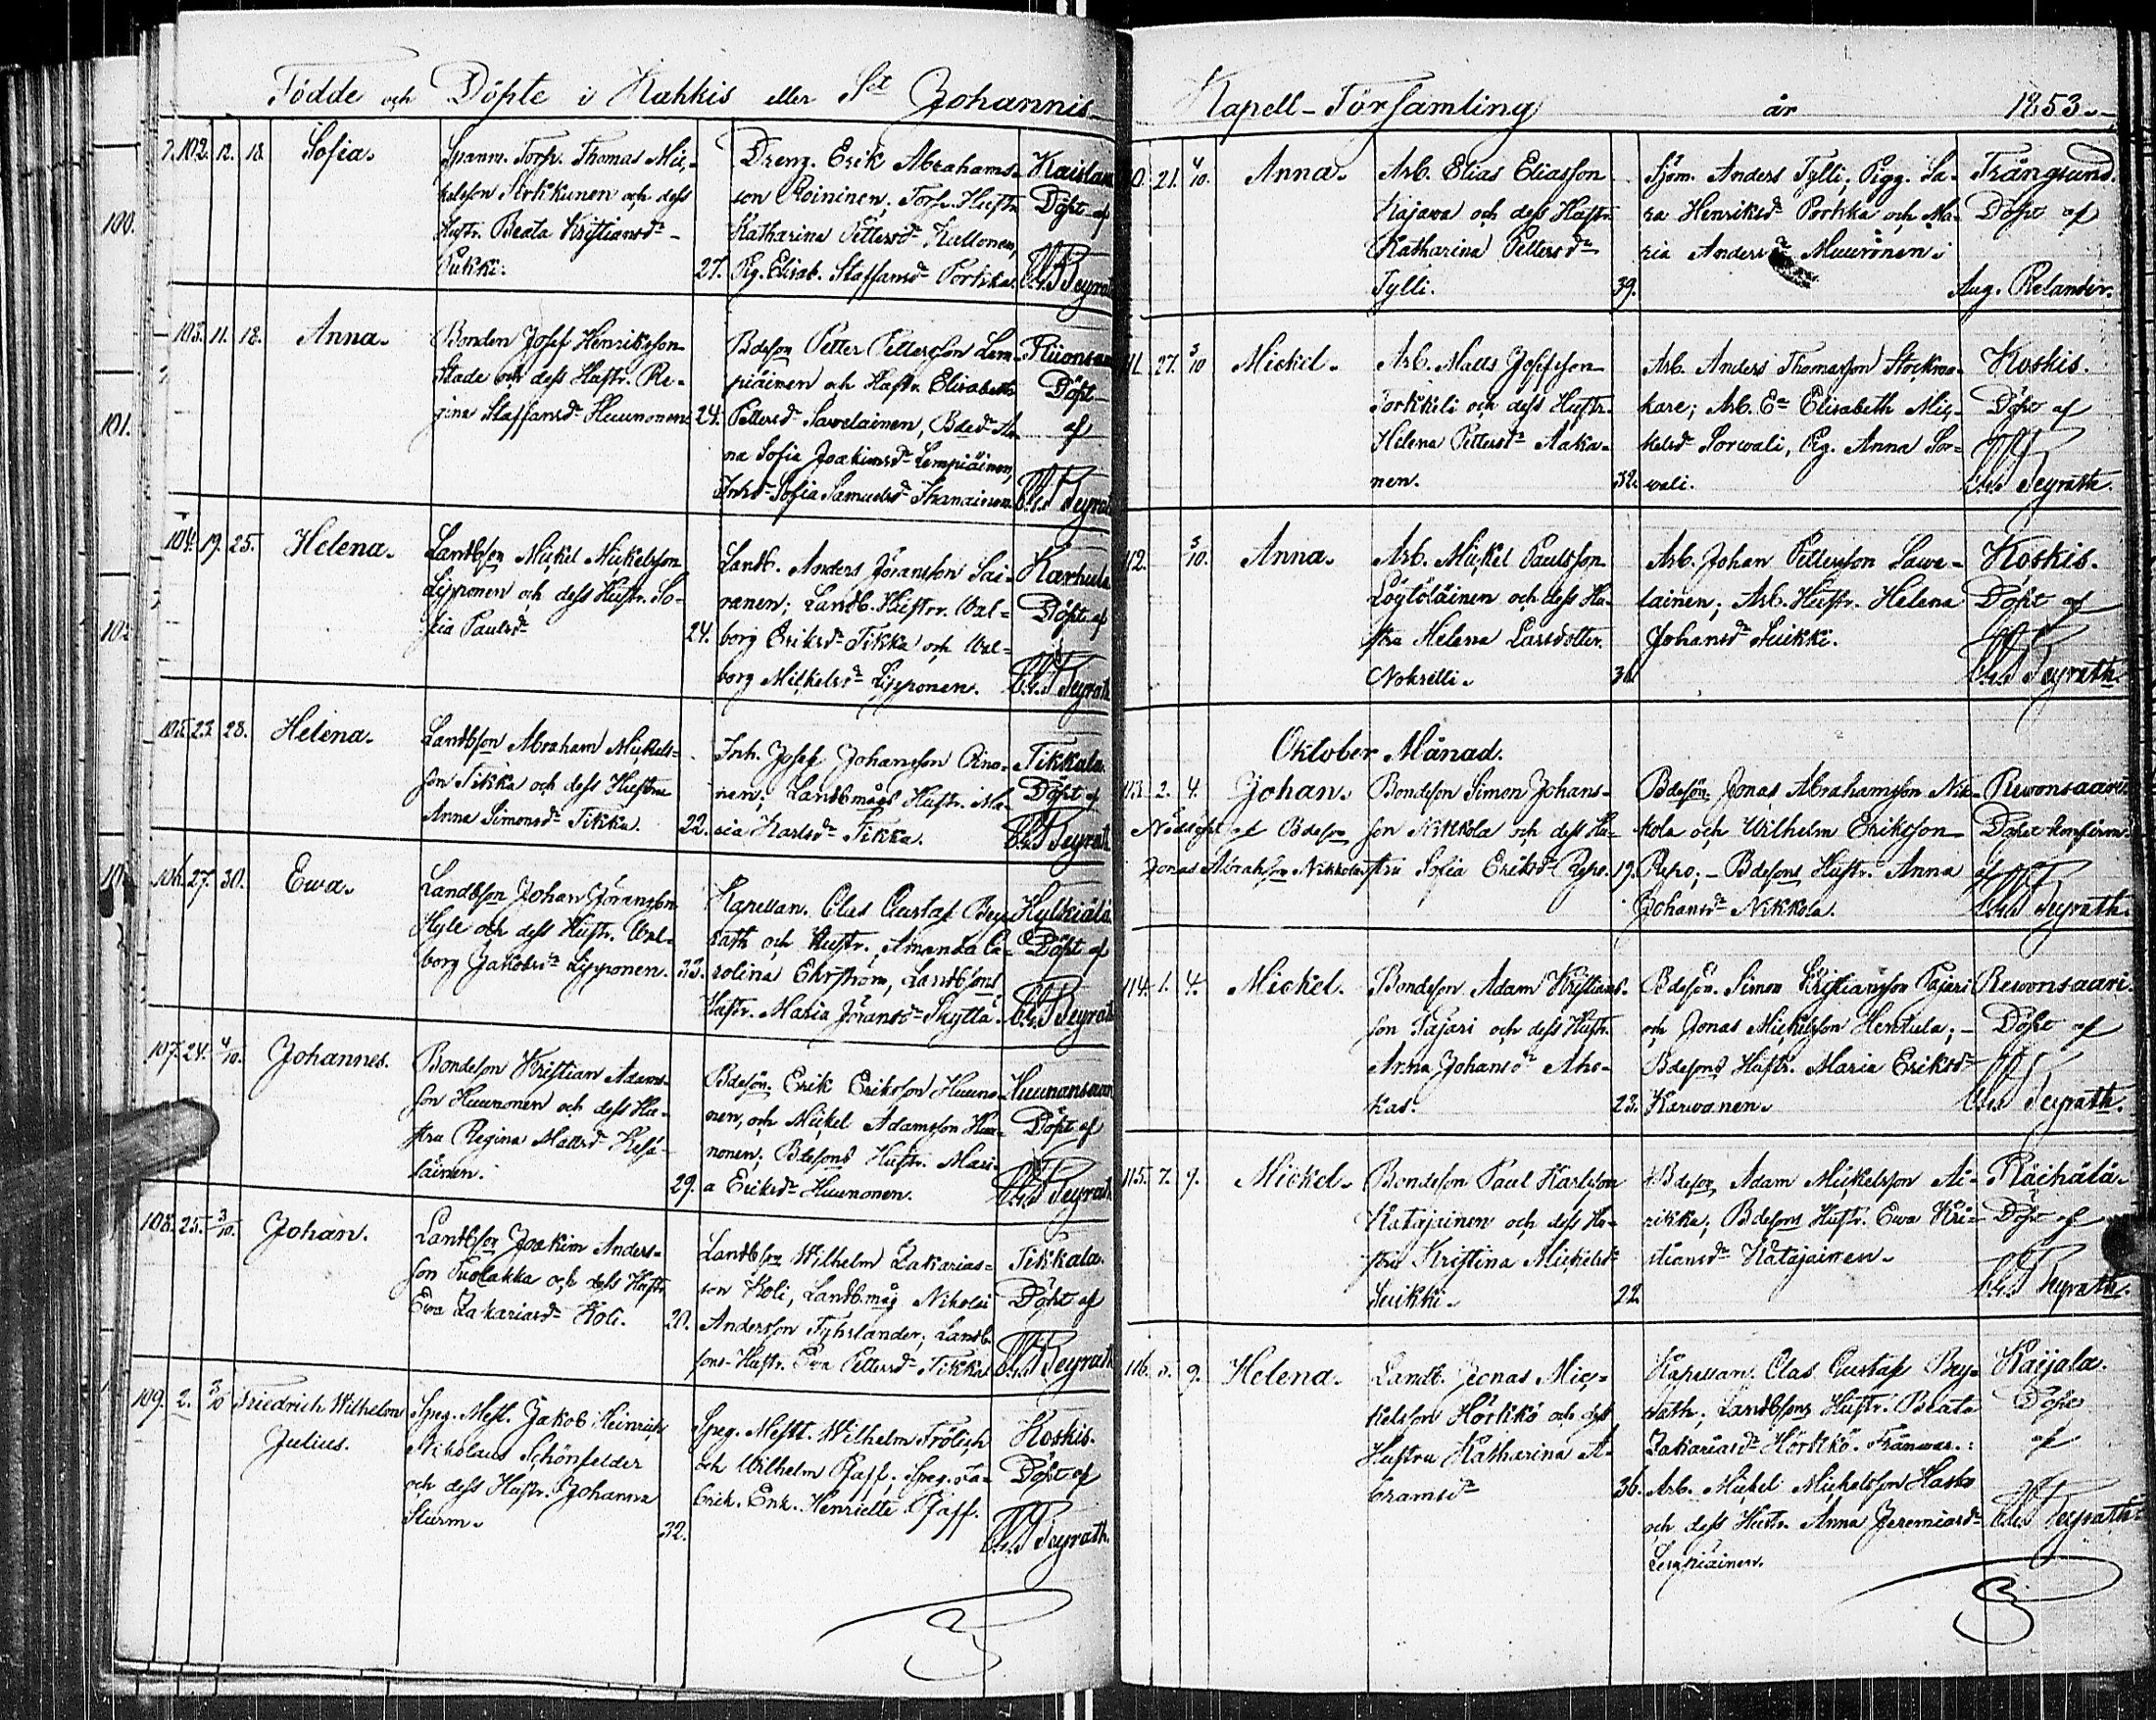 Födde och Döpte i Kakkis eller St Johannis
102. 12. 18. Sofia. Spanm. Torp. Thomas Mic-
kelsson Kirkkunen och dess
Hustr. Beata Kristiansdr
27.
Dreng. Erik Abrahams-
son Roininen, Torp. Hustr.
Katharina Pettersdr Kullonen,
Pig. Elisab. Staffansdr Porkka.
Döpt af
103. 11. 18. Anna. Bonden Josef Henriksson
Skade och dess Hustr. Re-
gina Staffansdr Huunonen. 24.
Bdeson Petter Pettersson Lem-
piäinen och Hustr. Elisabeth
Pettersdr Sawelainen, Bdedr An-
na Sofia Joakimsdr Lempiäinen,
Inhdr Sofia Samuelsdr Ihanainen.
Döpt
af
104. 19. 25. Helena. Landbson Mickel Mickelsson
Lipponen och dess Hustr. So-
fia Paulsdr 24.
Landb. Anders Jöransson Sai-
ranen; Landb. Hustr. Wal-
borg Eriksdr Tikka och Wal-
borg Mickelsdr Lipponen.
Karhula
Döpt af
105. 23. 28. Helena. Landbson Abraham Mickels-
son Tikka och dess Hustru
Anna Simonsdr Tikka. 22.
Inh. Josef Johansson Rino-
nen; Landbmågs Hustr. Ma-
ria Karlsdr Tikka.
Tikkala.
Döpt af
106. 27. 30. Ewa. Landbson Johan Jöransson
Hyle och dess Hustr. Wal-
borg Jakobsdr Lipponen. 33.
Kapellan. Clas Gustaf Bey-
rath och Hustr. Amanda Ca-
rolina Ehrström, Landbsons
Hustr. Maria Jöransdr Skyttä.
Kylkiälä
Döpt af
C.G. Beyrath
107. 24. 4/10. Johannes. Bondeson Kristian Adams-
son Huunonen och dess Hu-
stru Regina Mattsdr Kesä-
läinen. 29.
Bdeson. Erik Eriksson Huuno-
nen, och Mickel Adamsson Huu-
nonen; Bdesons Hustr. Mari-
a Eriksdr Huunonen.
Huunonsaari
Döpt af
108. 25. 3/10. Johan. Landbson Joakim Anders-
son Suolakka och dess Hustr.
Ewa Zakariasdr Koli. 20.
Landbson Wilhelm Zakarias-
son Koli, Landbmåg Nikolai
Andersson Fyhrlander; Landb-
sons Hustr. Ewa Pettersdr Tikka.
Tikkala.
Döpt af
C.G. Beyrath
109. 2. 3/10 Friedrich Wilhelm
Julius. Speg. Mest. Jakob Heinrich
Nikolaus Schönfelder
och dess Hustr. Johanna
Sturm. 32.
Speg. Mestt. Wilhelm Frölich
och Wilhelm Pfaff; Speg. Fa-
brik. Enk. Henriette Pfaff.
Koskis.
Döpt af
C.G. Beyrath.
100.
101.
Kapell-Församling år 1853.
21. 4/10. Anna. Arb. Elias Eliasson
Kajawa och dess Hustr.
Katharina Pettersdr
Tylli. 39.
Sjöm. Anders Tylli; Pigg. Sa-
ra Henriksdr Porkka och Ma-
ria Andersdr Muuronen.
Trångsund.
Döpt af
Aug. Relander.
27. 5/10 Mickel. Arb. Matts Josefsson
Torkkeli och dess Hustr.
Helena Pettersdr Aaka-
nen. 32.
Arb. Anders Thomasson Stockma-
kare; Arb. En Elisabeth Mic-
kelsd Sorwali, Pig. Anna Sor-
wali.
Koskis.
Döpt af
C.G. Beyrath.
112. 5/10. Anna. Arb. Mickel Paulsson
Löytöläinen och dess Hu-
stru Helena Larsdotter
Arb. Johan Pettersson Sawe-
lainen; Arb. Hustr. Helena
Johansdr Suikki.
Koskis.
Döpt af
C.G. Beyrath.
Oktober Månad.
113. 2. 4. Johan. Bondeson Simon Johans-
son Nikkola och dess Hu-
stru Sofia Eriksdr Repo. 19.
Nöddöpt af Bdeson
Jonas Abrahsson Nikkola
Bdeson. Jonas Abrahamsson Nik-
kola och Wilhelm Eriksson
Repo; - Bdesons Hustr. Anna
Johansdr Nikkola.
Rewonsaari
Döpet konfirm.
af
C.G. Beyrath.
114. 1. 4. Mickel. Bondeson Adam Kristians-
son Pajari och dess Hustr.
Anna Johansdr Aho-
kas. 23.
Bdeson. Simon Kristiansson Pajari
och Jonas Mickelsson Henkula; -
Bdesons Hustr. Maria Eriksdr
Karwanen.
Rewonsaari.
Döpt af
C.G. Beyrath.
115. 7. 9. Mickel. Bondeson Paul Karlsson
Katajainen och dess Hu-
stru Kristina Mickelsdr
Suikki. 22.
Bdeson Adam Mickelsson Äi-
rikka; Bdesons Hustr. Ewa Kri-
stiansdr Katajainen.
Räihälä.
Döpt af
C.G. Beyrath.
116. 5. 9. Helena. Landb. Jonas Mic-
kelsson Hörkkö och dess
Hustru Katharina A-
bramsdr 36.
Kapellan. Clas Gustaf Bey-
rath; Landbsons Hustr. Beata
Zakariasdr Hörkkö. Frånwar.:
Arb. Mickel Mickelsson Haska
och dess Hustr. Anna Jeremiasdr
Lempiäinen.
Kaijala.
Döpt
af
C.G. Beyrath.